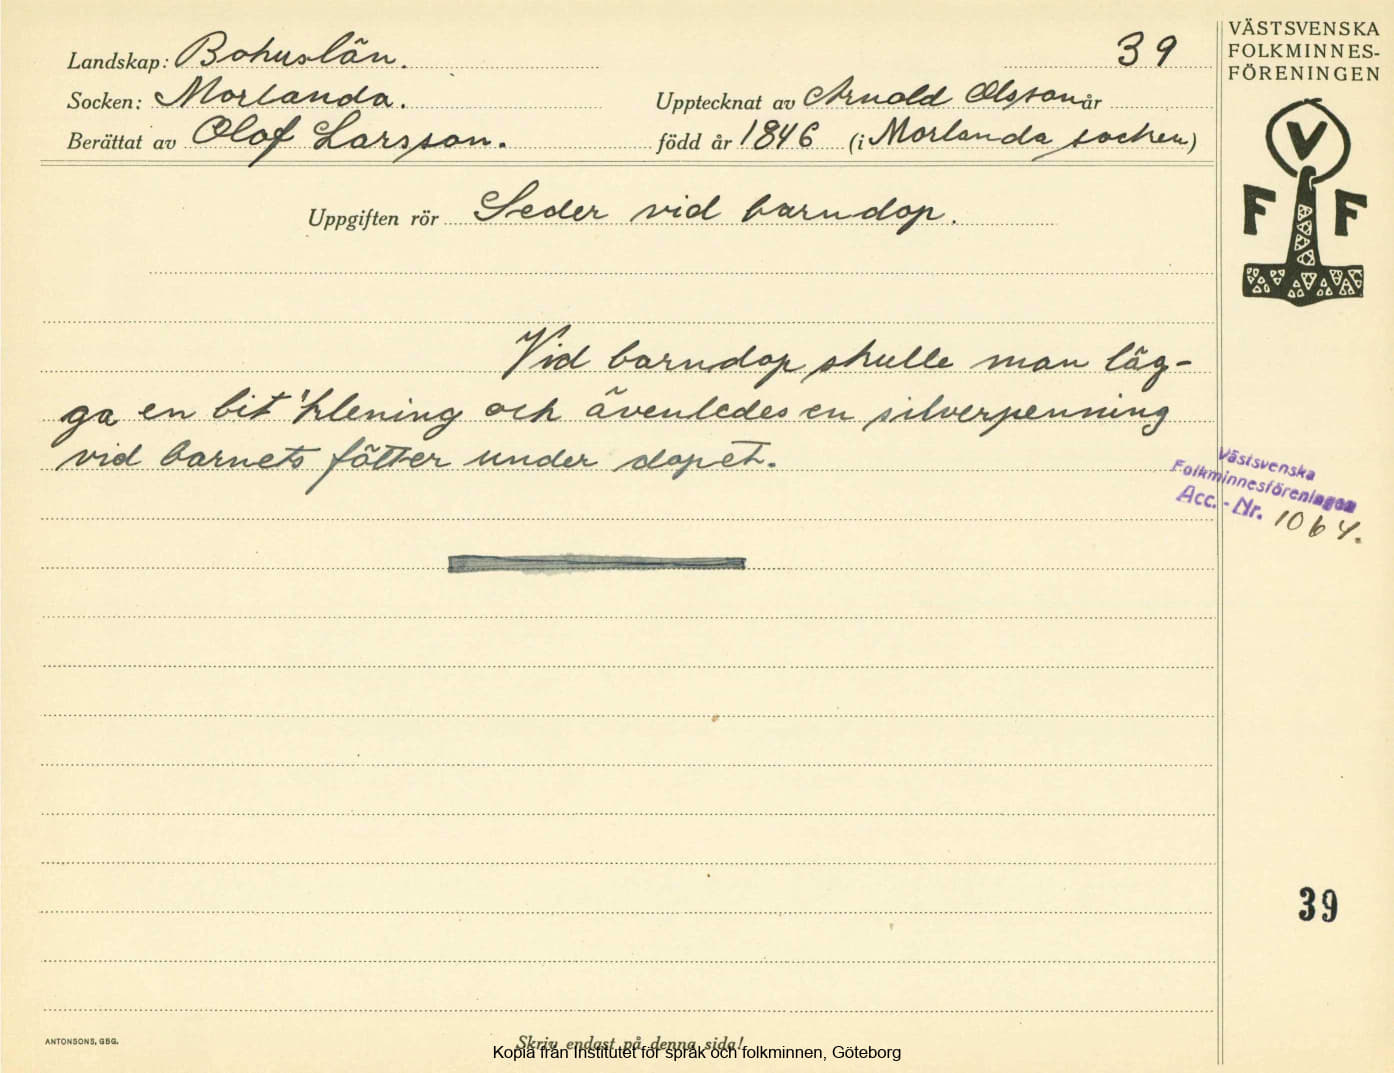 VÄSTSVENSKA
FOLKMINNES-
FÖRENINGEN
Landskap: Bohuslän. 39
Socken: Morlanda. Upptecknat av Arnold Olsson år
Berättat av Olof Larsson. född år 1846 (i Morlanda socken)
V
F F
Uppgiften rör Seder vid barndop.
Vid barndop skulle man läg-
ga en bit 'klening och ävenledes en silverpenning
vid barnets fötter under dopet.
Västsvenska
Folkminnesföreningen
Acc.-Nr. 1064.
39
ANTONSONS, GBG.
Skriv endast på denna sida!
Kopia från Institutet för språk och folkminnen, Göteborg